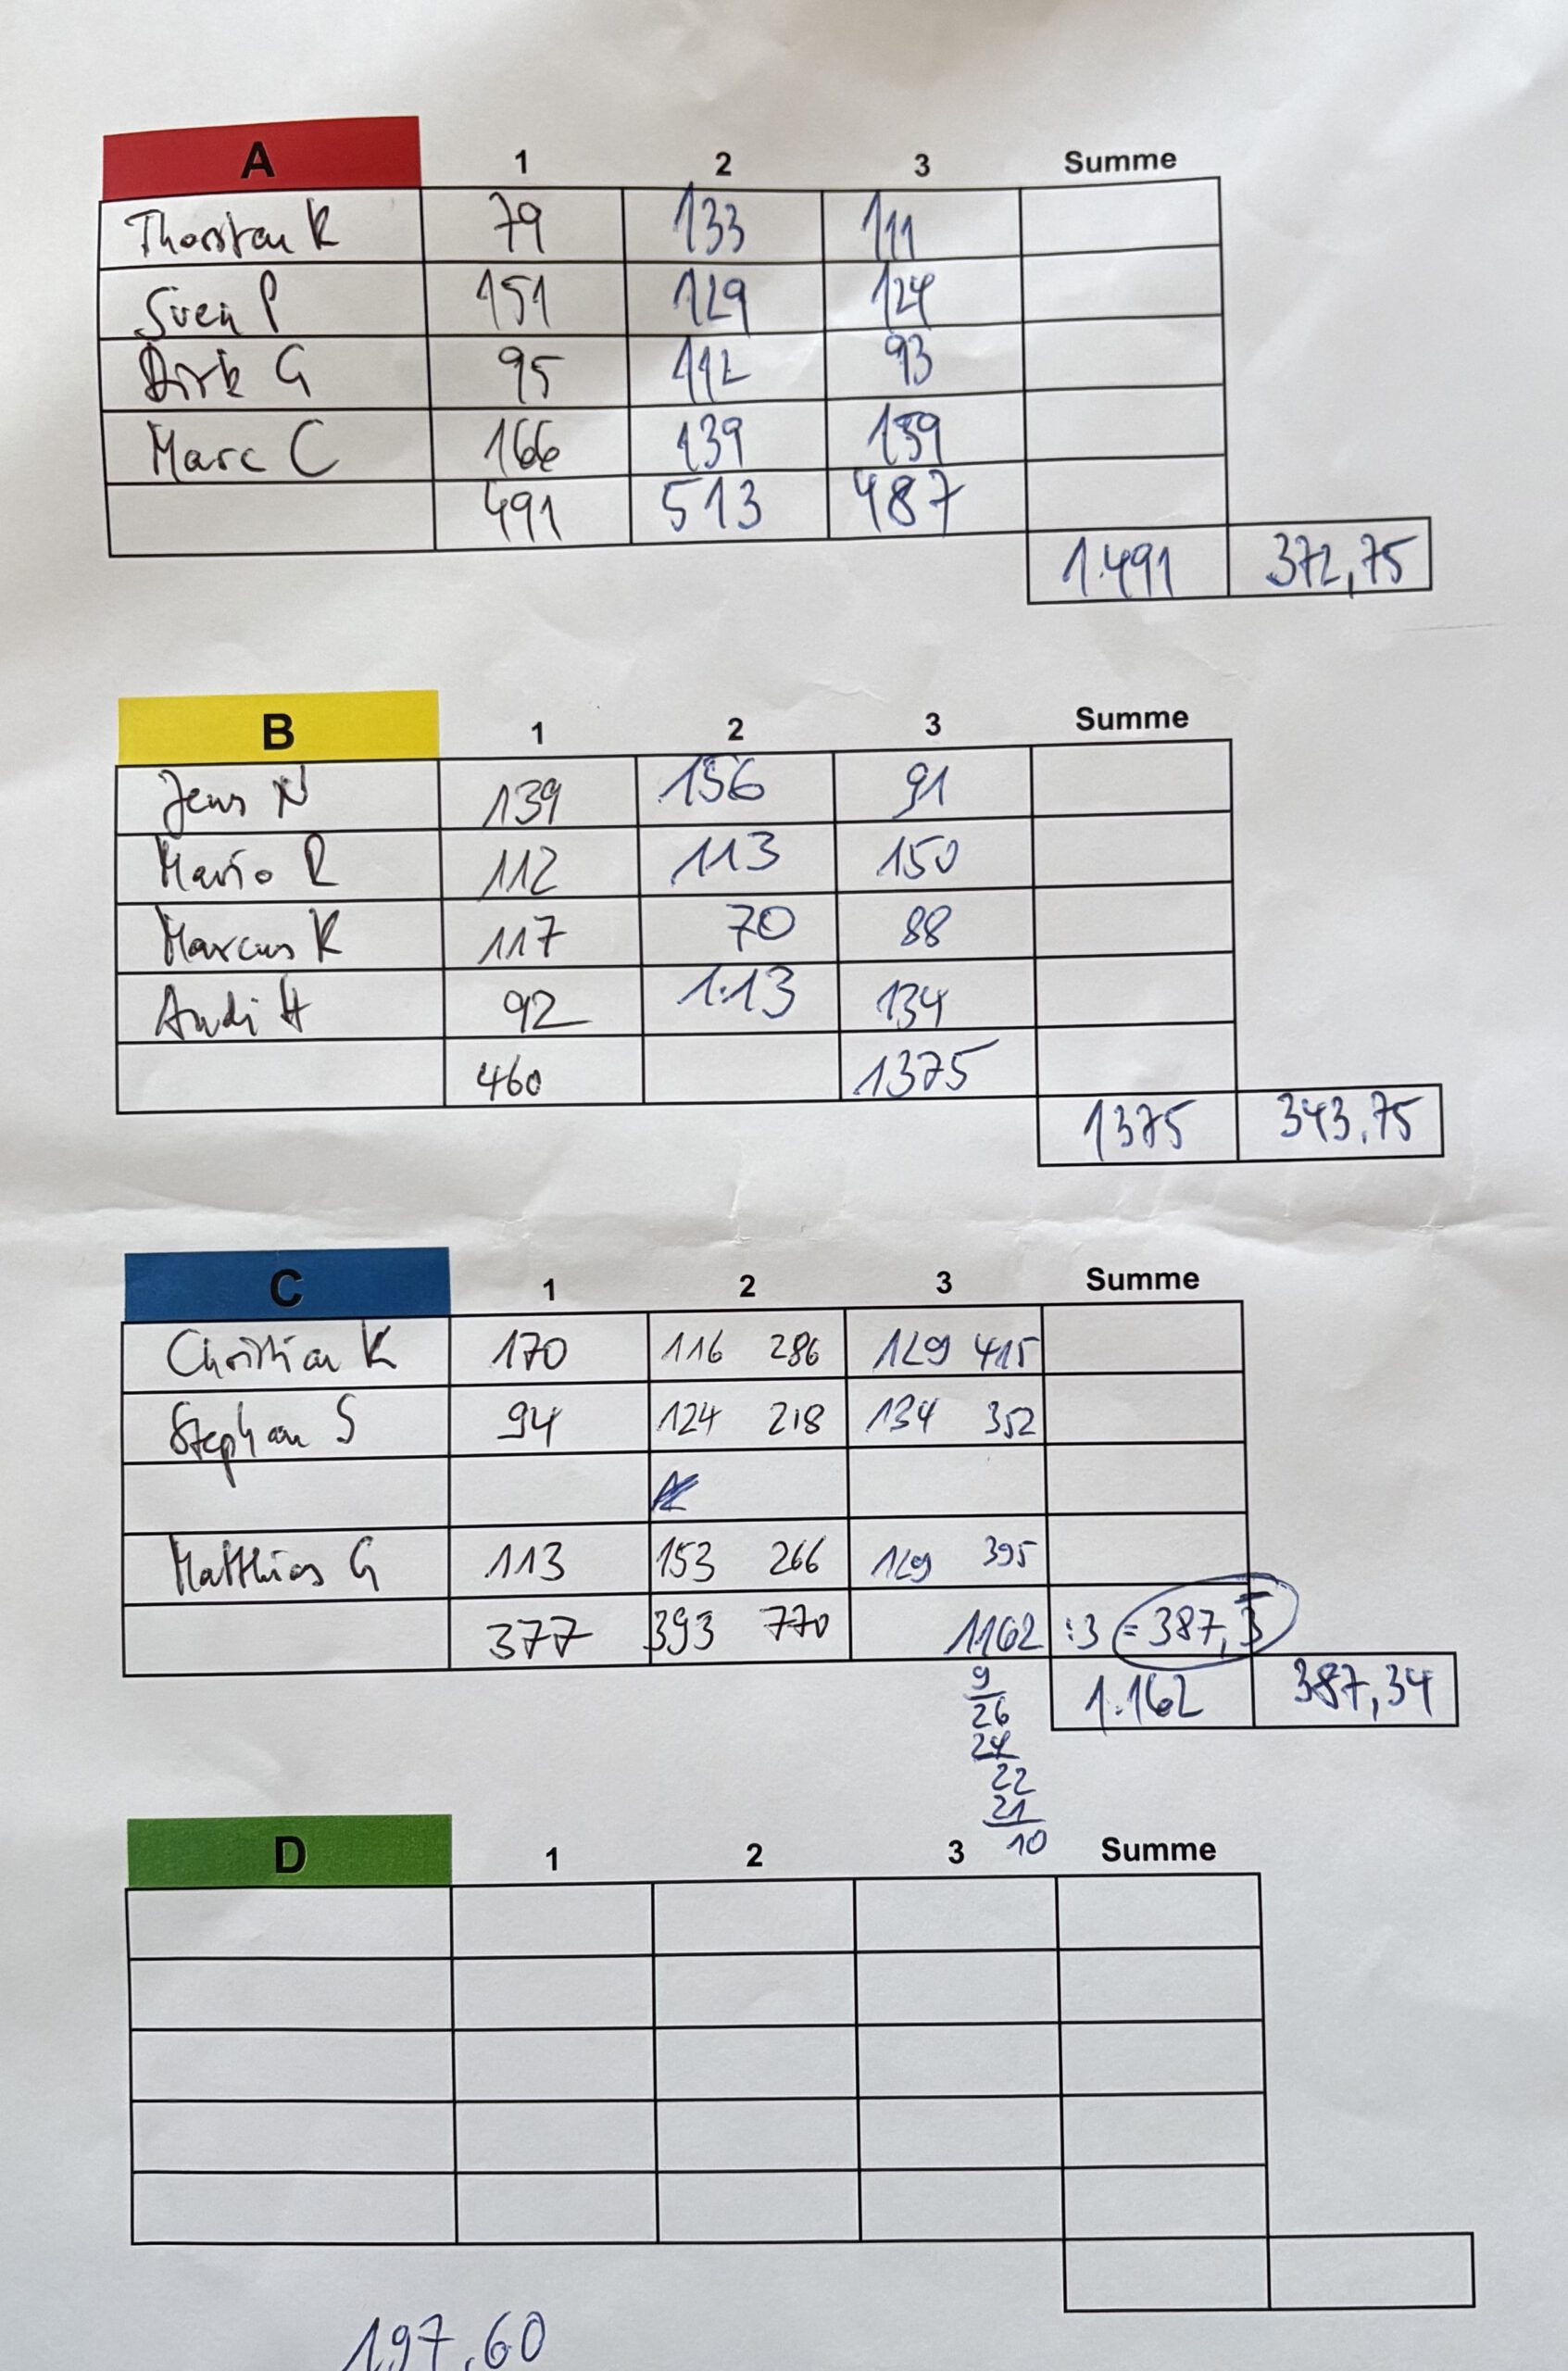 A 1 2 3 Summe
Thorsten K 79 133 111
Sven P 151 129 124
Dirk G 95 112 93
Marc C 166 139 159
491 513 487
1.491 372,75
B 1 2 3 Summe
Jens N 139 156 91
Mario R 112 113 150
Marcus K 117 70 88
Andi H 92 113 134
460 1375
1375 343,75
C 1 2 3 Summe
Christian K 170 116 286 129 415
Stephan S 94 124 218 134 352
Matthias G 113 153 266 129 395
377 393 770 1162 :3 = 387,3
9 1.162 387,34
26
24
22
21
10
D 1 2 3 Summe
197,60